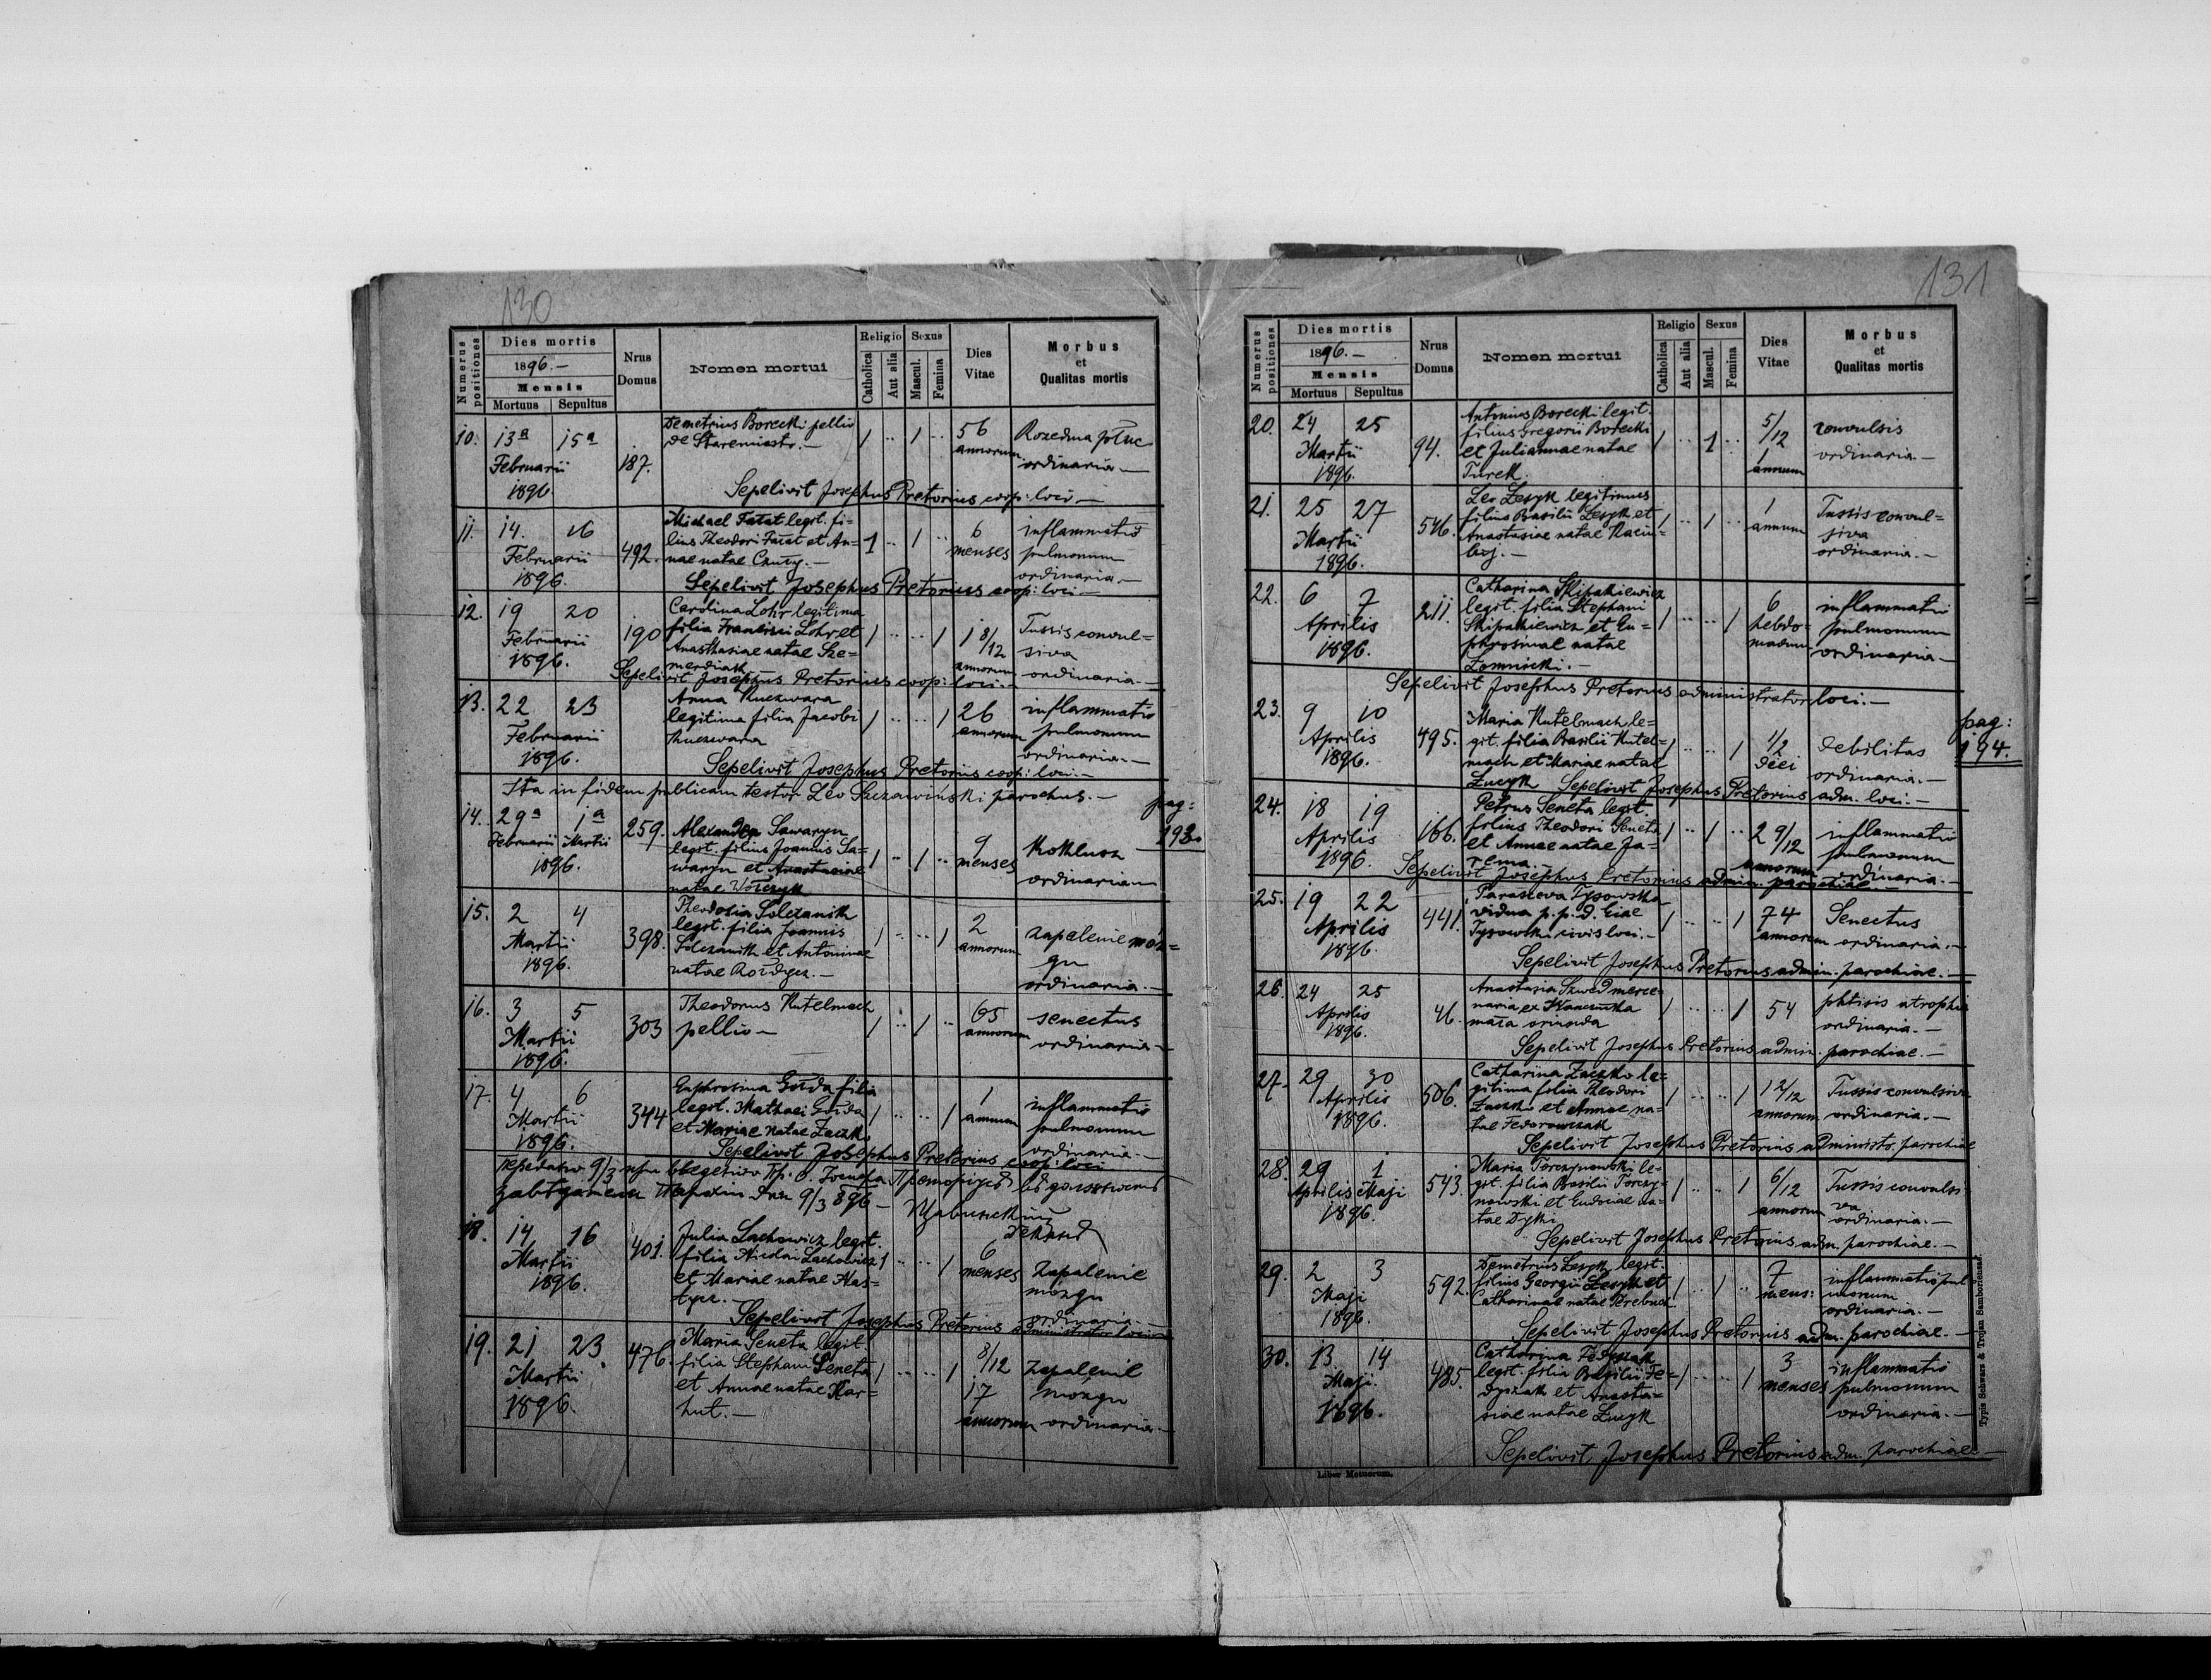 130
Numerus positiones
Dies mortis
1896.—
Mensis
Mortuus Sepultus
Nrus Domus
Nomen mortui
Religio
Catholica
Aut alia
Sexus
Mascul.
Femina
Dies Vitae
Morbus
et
Qualitas mortis
10. 13ª 15ª
Februarii
1896.
187.
Demetrius Borecki pellio
de Staremiasto.—
1 .. 1 ..
56
annorum
Rozedma płuc
ordinaria—
Sepelivit Josephus Pretorius coop: loci—
11. 14. 16
Februarii
1896.
492.
Michael Fatat legit. fi=
lius Theodori Fatat et An=
nae natae
1 .. 1 ..
6
menses
inflammatio
pulmonum
ordinaria.—
Sepelivit Josephus Pretorius coop: loci—
12. 19 20
Februarii
1896.
190
Carolina Lohr legitima
filia Francisci Lohr et
Anasthasiae natae Sze=
merdiak
1 .. .. 1
1 8/12
annorum
Tussis convul=
siva
ordinaria.—
Sepelivit Josephus Pretorius coop: loci.—
13. 22 23
Februarii
1896.
Anna Kuczwara
legitima filia Jacobi
Kuczwara
1 .. .. 1
26
annorum
inflammatio
pulmonum
ordinaria.—
Sepelivit Josephus Pretorius coop: loci.—
Ita in fidem publicam testor Leo Szczawiński parochus.—
pag:
193.
14. 29ª 1ª
Februarii Martii
1896.
259.
Alexander Sawaryn
legit. filius Joannis Sa=
waryn et Anastasiae
natae Worczyk
1 .. 1 ..
9
menses
Kokklusz
ordinaria—
15. 2 4
Martii
1896.
398.
Theodosia Solczanik
legit. filia Joannis
Solczanik et Antoninae
natae
1 .. .. 1
2
annorum
zapalenie móz=
gu
ordinaria.—
16. 3 5
Martii
1896.
303
Theodorus Kutelmach
pellio—
1 .. 1 ..
65
annorum
senectus
ordinaria—
17. 4 6
Martii
1896.
344
Euphrosina Gozda filia
legit. Mathaei Gozda
et Mariae natae Zaczk
1 .. .. 1
1
annum
inflammatio
pulmonum
ordinaria.—
Sepelivit Josephus Pretorius coop: loci
9/3 при
9/3 896 —
18. 14 16
Martii
1896.
401.
Julia Lachowicz legit.
filia Nicolai Lachowicz
et Mariae natae Has=
tycz.—
1 .. .. 1
6
menses
zapalenie
mozgu
ordinaria.—
Sepelivit Josephus Pretorius administrator loci
19. 21 23.
Martii
1896.
476
Maria Seneta legit.
filia Stephani Seneta
et Annae natae Kar=
hut.—
1 .. .. 1
8/12
17
annorum
zapalenie
mozgu
ordinaria—
131
Numerus positiones
Dies mortis
1896.—
Mensis
Mortuus Sepultus
Nrus Domus
Nomen mortui
Religio
Catholica
Aut alia
Sexus
Mascul.
Femina
Dies Vitae
Morbus
et
Qualitas mortis
20. 24 25
Martii
1896.
94.
Antonius Borecki legit.
filius Gregorii Borecki
et Juliannae natae
Turek.
1 .. 1 ..
5/12
1
annum
convulsis
ordinaria—
21. 25 27
Martii
1896.
546.
Leo Lesyk legitimus
filius Basilii Lesyk et
Anastasiae natae
1 .. 1 ..
1
annum
Tussis convul=
siva
ordinaria.—
22. 6 7
Aprilis
1896.
211.
Catharina Skipakiewicz
legit. filia Stephani
Skipakiewicz et Eu=
phrosinae natae
Łomnicki.—
1 .. .. 1
6
hebdo=
madum
inflammatio
pulmonum
ordinaria—
Sepelivit Josephus Pretorius administrator loci.—
23. 9 10
Aprilis
1896.
495.
Maria Kutelmach le=
git. filia Basilii Kutel=
mach et Mariae natae
Łucyk
1 .. .. 1
1/2
diei
debilitas
ordinaria.—
pag:
194.
Sepelivit Josephus Pretorius adm. loci.—
24. 18 19
Aprilis
1896.
166.
Petrus Seneta legit.
filius Theodori Seneta
et Annae natae Ja=
rema.—
1 .. 1 ..
2 9/12
annorum
inflammatio
pulmonum
ordinaria.—
Sepelivit Josephus Pretorius admin. parochiae—
25. 19 22
Aprilis
1896.
441.
Parascewa Tysowska
vidua p. p. d. Eliae
Tysowski civis loci.—
1 .. .. 1
74
annorum
Senectus
ordinaria.—
Sepelivit Josephus Pretorius admin. parochiae.—
26. 24 25
Aprilis
1896.
46.
Anastasia Szwed merce=
naria ex
oriunda
1 .. .. 1
54
phtisis atrophia
ordinaria.—
Sepelivit Josephus Pretorius admin. parochiae.—
27. 29 30
Aprilis
1896.
506.
Catharina Zaczko le=
gitima filia Theodori
Zaczko et Annae na=
tae Fedorowczak
1 .. .. 1
1 2/12
annorum
Tussis convulsiva
ordinaria.—
Sepelivit Josephus Pretorius administr. parochiae
28. 29 1
Aprilis Maji
1896.
543.
Maria Torczynowski le=
git. filia Basilii Torczy=
nowski et Eudociae na=
tae Dyki
1 .. .. 1
6/12
annorum
Tussis convulsi
va
ordinaria.—
Sepelivit Josephus Pretorius adm. parochiae.—
29. 2 3
Maji
1896.
592.
Demetrius Lesyk legit.
filius Georgii Lesyk et
Catharinae natae Hrebniak
1 .. 1 ..
7
mens:
inflammatio pul
monum
ordinaria.—
Sepelivit Josephus Pretorius adm. parochiae.—
30. 13 14
Maji
1896.
485.
Catharina Fedyszak
legit. filia Basilii Fe=
dyszak et Anasta=
siae natae Łucyk
1 .. .. 1
3
menses
inflammatio
pulmonum
ordinaria.—
Sepelivit Josephus Pretorius adm. parochiae—
Liber Motuorum.
Typis Schwarz & Trojan Samboriensae